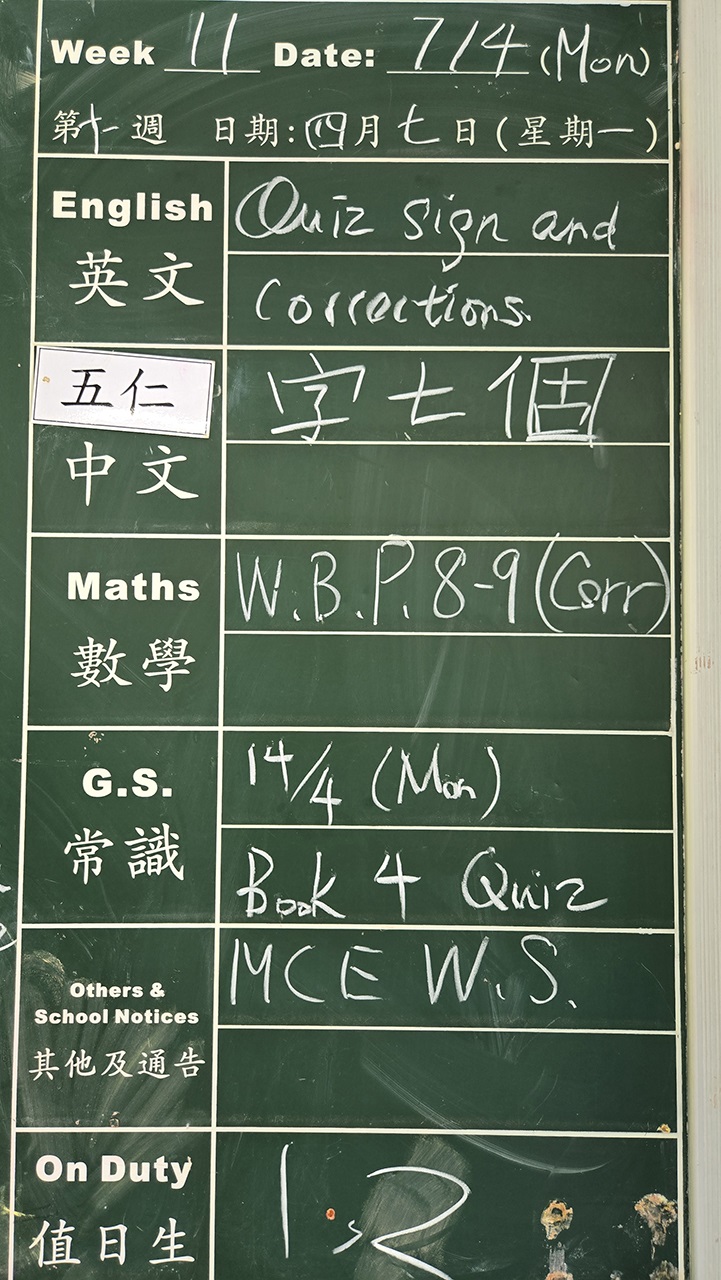 Week 11 Date: 7/4 (Mon)
第十一週 日期:四月七日(星期一)
English
英文
Quiz sign and
Corrections.
五仁
中文
字七個
Maths
數學
W.B.P. 8-9 (Corr)
G.S.
常識
14/4 (Mon)
Book 4 Quiz
Others &
School Notices
其他及通告
MCE W.S.
On Duty
值日生
1, 2